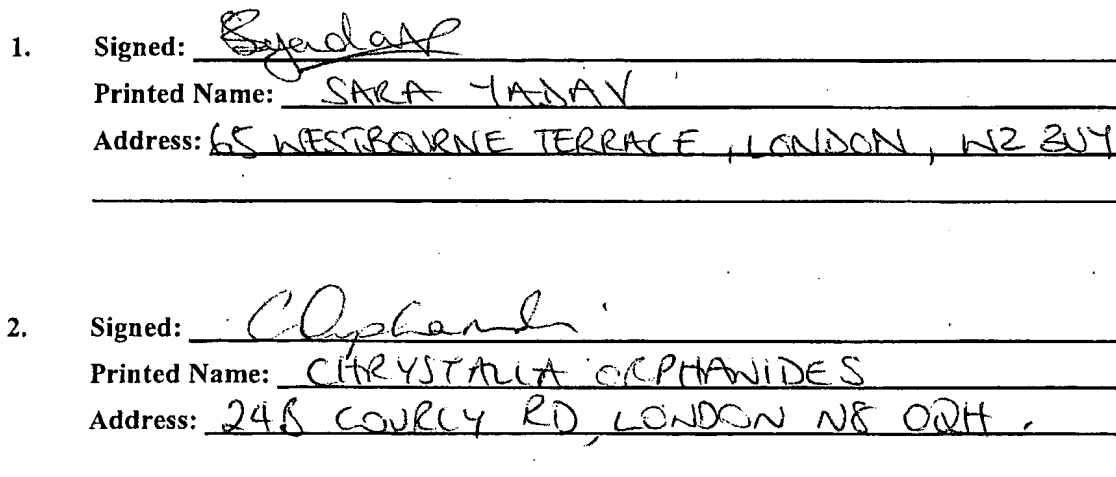 1. Signed: Syadav
Printed Name: SARA YADAV
Address: 65 WESTBOURNE TERRACE, LONDON, W2 3UY
2. Signed:
Printed Name: CHRYSTALLA ORPHANIDES
Address: 24B COURCY RD, LONDON N8 0QH.